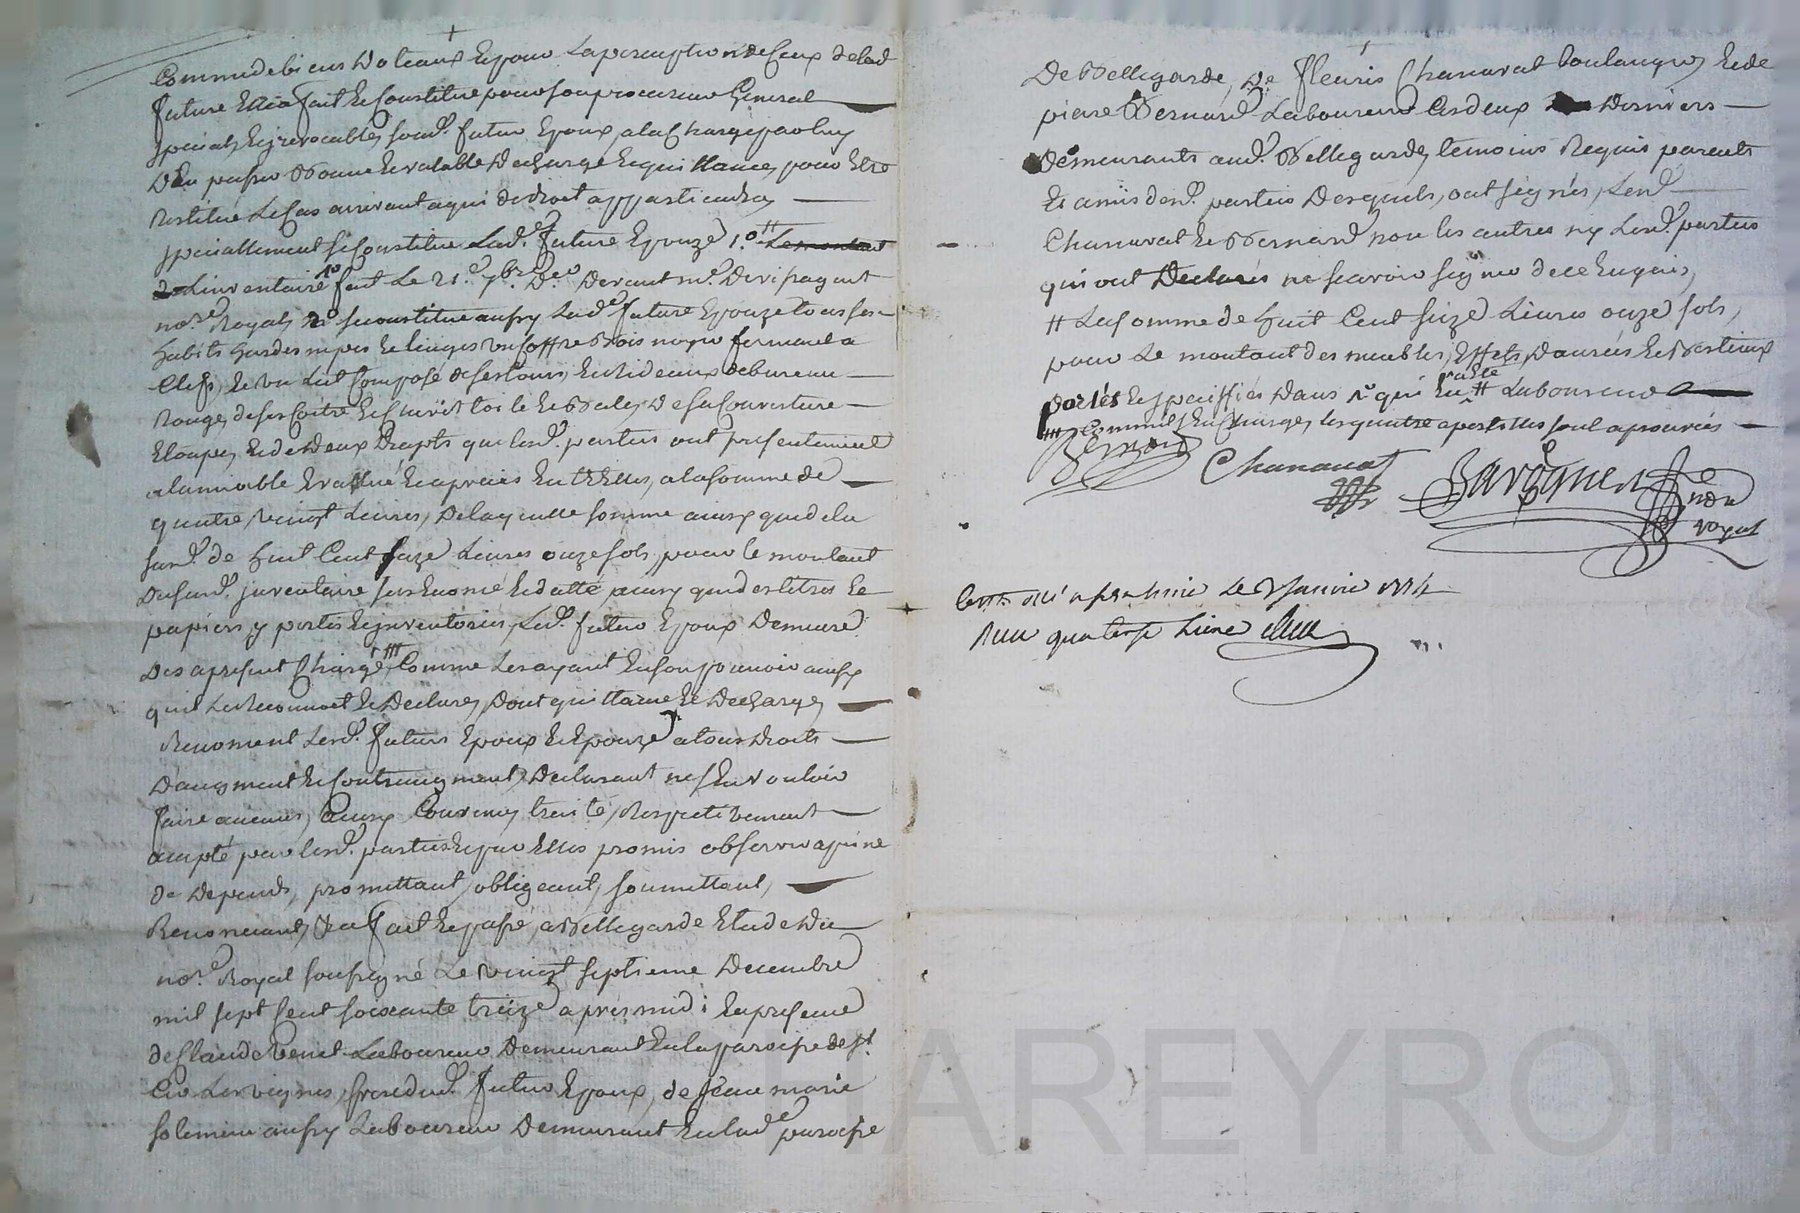 Comme de biens Doteaux Et pour La perception de Ceux de lad
future Elle a fait Et Constitué pour son procureur General
special, Et jrrevocable, sond. futur Epoux, a la Charge par luy
D'En passer Bonne Et valable Decharge Et quittance, pour Etre
Restitué Le Cas arrivant a qui de droit appartiendra,
specialement se Constitue Lad.e future Epouze 1.o # Le montant
de L'inventaire fait Le 21.e 7bre D.er Devant m.e Devipagut
no.re Royal, 2o se constitue aussy Lad.e future Epouze tous ses
habits hardes nipes Et linges un Coffre Bois noyer fermant a
Clef, Et un Lit Composé de ses tours, Et Rideaux de bureau
Rouge, de ser Coitre Et Chuïet toile Et Bale, De sa Couverture
Etoupe, Et de Deux Drapts que lesd. parties ont presentement
alamiable Evalué Et aprecié Entr'Elles, a la somme de
quatre vingt Livres, De laquelle somme ainsy que de la
susd. de huit Cent seize Livres onze sols, pour le montant
Du susd. jnventaire sus Enoncé Et datté ainsy que des titres Et
papiers y portés Et jnventoriés, Led. futur Epoux Demeure
Des apresent Chargé /// Comme Les ayant En son pouvoir ainsy
qu'il Le Reconnoit Et Declare, Dont quittance Et Decharge,
Renoncent Lesd. futurs Epoux Et Epouze a tous Droits
D'augment Et Contreaugment, Declarant ne s'En vouloir
faire aucuns, Ainsy Convenu, traité, Respectivement
accepté par lesd. parties Et par Elles promis observer a peine
de Depends, promettant, obligeant, soumettant,
Renonciant, &a fait Et passé, a Bellegarde Etude Du
no.re Royal soussigné Le vingt septieme Decembre
mil sept Cent soixante treize apres midi ; En presence
de Claude Venet Laboureur Demeurant En la paroisse de St
Cir Les vignes, frere dud. futur Epoux, de Jean marie
Solemieu aussy Laboureur Demeurant En lad.e paroisse
De Bellegarde, De fleuris Chanavat boulanger, Et de
pierre Bernard Laboureur Les deux Derniers
Demeurants aud. Bellegarde, temoins Requis parents
Et amis desd. parties Desquels, ont signés, Lesd.
Chanavat Et Bernard non les autres ny Lesd. parties
qui ont Declarés ne scavoir signer de ce Enquis,
# La somme de huit Cent seize Livres onze sols,
pour Le montant des meubles, Effets, Danrées Et Bestiaux
portés Et speciffiés Dans # Laboureur
/// Comme Chargé, les quatre apostilles sont aprouvées
Bernard
Chanavat
Baroqner
no.re
Royal
Janvier 1774
Reçu quatorze Livres
CHAREYRON